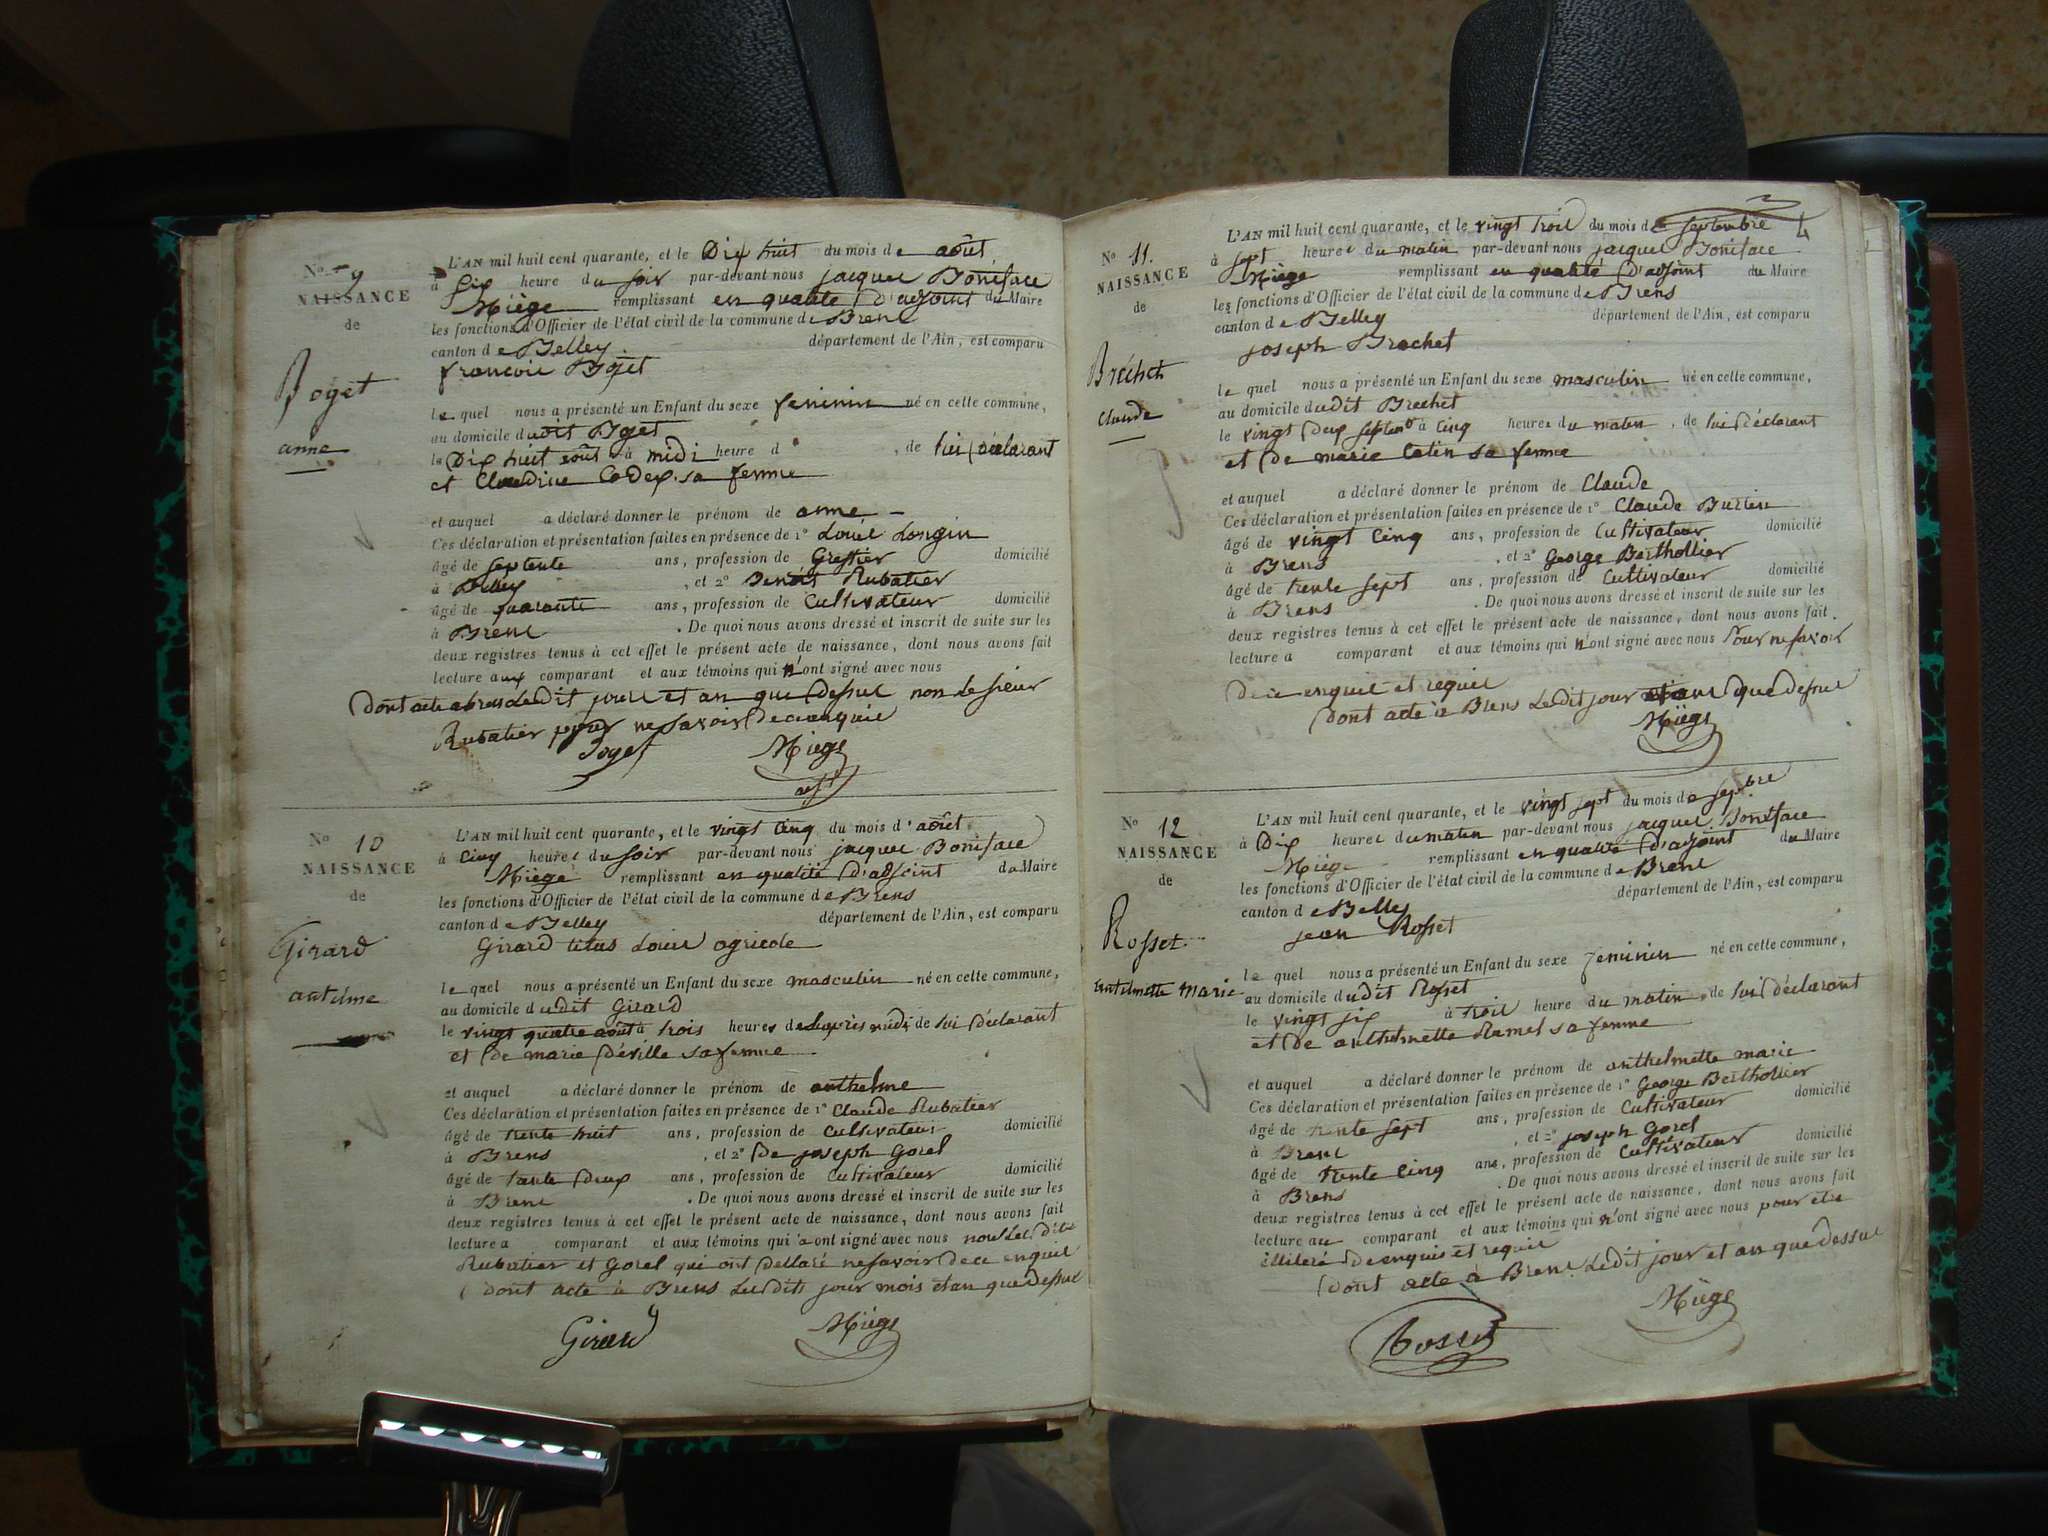 No 9
NAISSANCE
de
Boget
anne
L'AN mil huit cent quarante, et le Dix huit du mois de août
à Six heure du soir par-devant nous jacques Boniface
Miège remplissant en qualité d'adjoint du Maire
les fonctions d'Officier de l'état civil de la commune de Brens
canton de Belley département de l'Ain, est comparu
françois Boget
le quel nous a présenté un Enfant du sexe feminin né en cette commune,
au domicile dudit Boget
le Dix huit août à midi heure d , de lui déclarant
et Claudine Codex sa femme
et auquel a déclaré donner le prénom de anne
Ces déclaration et présentation faites en présence de 1° Louis Longin
âgé de septente ans, profession de Greffier domicilié
à Belley, et 2° Benoit Rubatier
âgé de quarante ans, profession de Cultivateur domicilié
à Brens. De quoi nous avons dressé et inscrit de suite sur les
deux registres tenus à cet effet le présent acte de naissance, dont nous avons fait
lecture aux comparant et aux témoins qui n'ont signé avec nous
Dont acte a brens Ledit jour et an que Dessus non Le sieur
Rubatier pour ne savoir De ce enquis
Boget Miège
adjt
No 10
NAISSANCE
de
Girard
antelme
L'AN mil huit cent quarante, et le vingt cinq du mois d'août
à cinq heures du soir par-devant nous jacques Boniface
Miège remplissant en qualité d'adjoint du Maire
les fonctions d'Officier de l'état civil de la commune de Brens
canton de Belley département de l'Ain, est comparu
Girard titus Louis agricole
le quel nous a présenté un Enfant du sexe masculin né en cette commune,
au domicile dudit Girard
le vingt quatre août à trois heures de l'après midi de lui déclarant
et de marie Déville sa femme
et auquel a déclaré donner le prénom de anthelme
Ces déclaration et présentation faites en présence de 1° Claude Rubatier
âgé de trente huit ans, profession de Cultivateur domicilié
à Brens, et 2° De joseph Gorel
âgé de trente Deux ans, profession de Cultivateur domicilié
à Brens. De quoi nous avons dressé et inscrit de suite sur les
deux registres tenus à cet effet le présent acte de naissance, dont nous avons fait
lecture a comparant et aux témoins qui ont signé avec nous non Les dits
Rubatier et Gorel qui ont Déclaré ne savoir De ce enquis
Dont acte à Brens Lesdits jour mois et an que Dessus
Girard Miège
4
No 11.
NAISSANCE
de
Bréchet
Claude
L'AN mil huit cent quarante, et le vingt trois du mois de septembre
à sept heures du matin par-devant nous jacques Boniface
Miège remplissant en qualité d'adjoint du Maire
les fonctions d'Officier de l'état civil de la commune de Brens
canton de Belley département de l'Ain, est comparu
joseph Brochet
le quel nous a présenté un Enfant du sexe masculin né en cette commune,
au domicile dudit Brechet
le vingt Deux septbre à cinq heures du matin, de lui déclarant
et De marie Catin sa femme
et auquel a déclaré donner le prénom de Claude
Ces déclaration et présentation faites en présence de 1° Claude Burtin
âgé de vingt cinq ans, profession de Cultivateur domicilié
à Brens, et 2° George Berthollier
âgé de trente sept ans, profession de Cultivateur domicilié
à Brens. De quoi nous avons dressé et inscrit de suite sur les
deux registres tenus à cet effet le présent acte de naissance, dont nous avons fait
lecture a comparant et aux témoins qui n'ont signé avec nous Pour ne savoir
De ce enquis et requis
Dont acte à Brens Ledit jour et an que Dessus
Miège
No 12
NAISSANCE
de
Rosset
antelmette Marie
L'AN mil huit cent quarante, et le vingt sept du mois de sepbre
à Dix heures du matin par-devant nous jacques Boniface
Miège remplissant en qualité d'adjoint du Maire
les fonctions d'Officier de l'état civil de la commune de Brens
canton de Belley département de l'Ain, est comparu
jean Rosset
le quel nous a présenté un Enfant du sexe feminin né en cette commune,
au domicile dudit Rosset
le vingt six à trois heure du matin, de lui déclarant
et De anthelmette Ramel sa femme
et auquel a déclaré donner le prénom de anthelmette marie
Ces déclaration et présentation faites en présence de 1° George Berthollier
âgé de trente sept ans, profession de Cultivateur domicilié
à Brens, et 2° joseph Gorel
âgé de trente cinq ans, profession de Cultivateur domicilié
à Brens. De quoi nous avons dressé et inscrit de suite sur les
deux registres tenus à cet effet le présent acte de naissance, dont nous avons fait
lecture au comparant et aux témoins qui n'ont signé avec nous pour etre
illiteré De enquis et requis
Dont acte à Brens Ledit jour et an que dessus
Rosset Miège